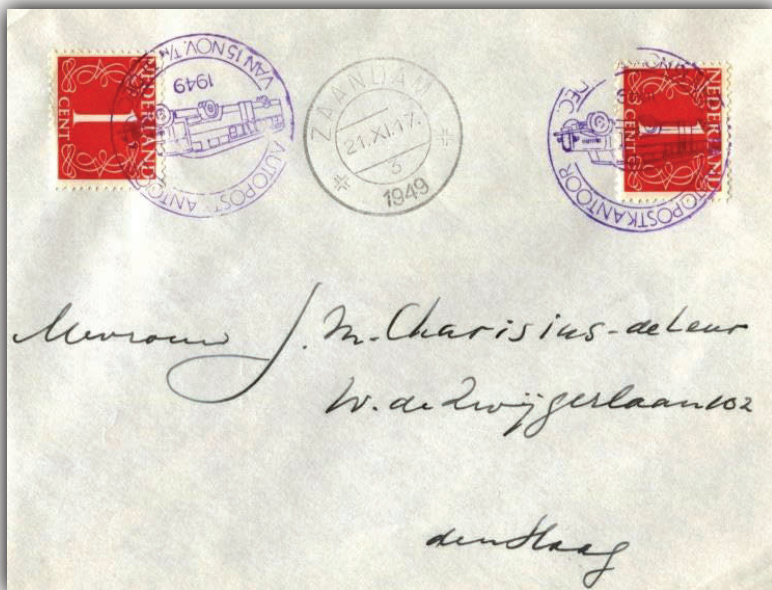 NEDERLAND
1
CENT
AUTOPOSTKANTOOR
VAN 15 NOV. T/M
1949
ZAANDAM
21.XI.17.
3
1949
NEDERLAND
1
CENT
AUTOPOSTKANTOOR
DEC
NOV.
Mevrouw J. M. Charisius-deLeur
W. de Zwijgerlaan 102
den Haag